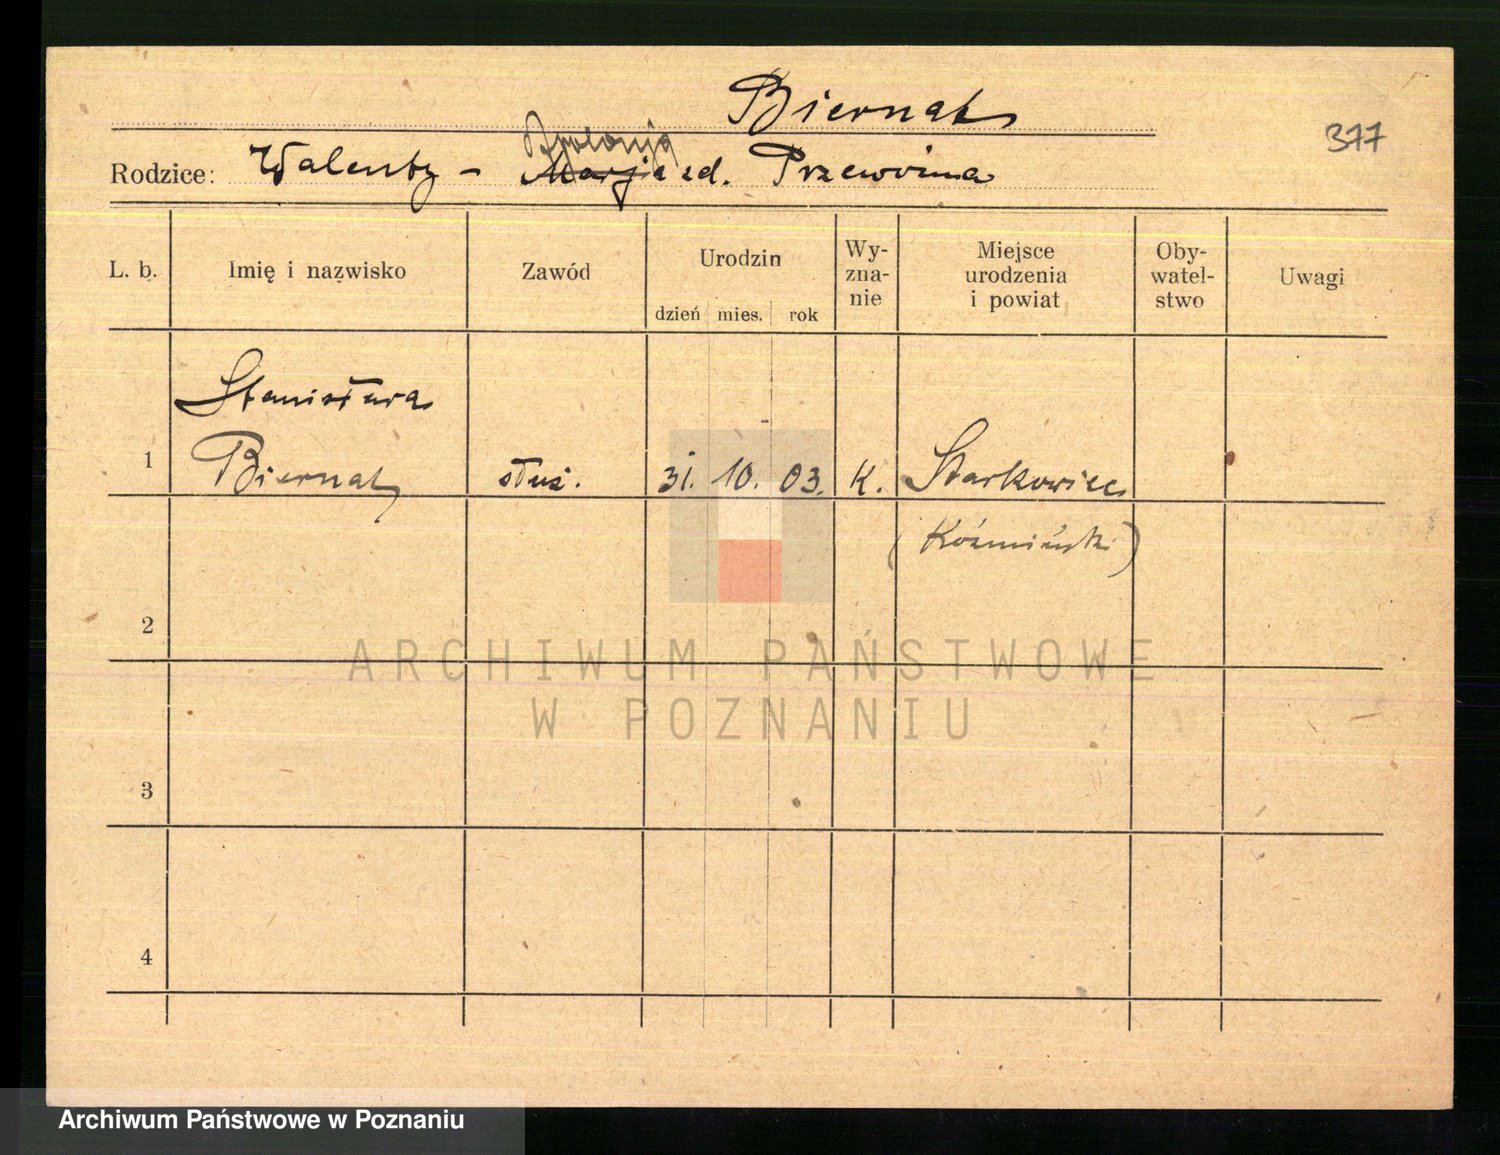 Biernat
377
Apolonja
Rodzice: Walenty - Marja zd. Przewoźna
L. b. Imię i nazwisko Zawód Urodzin dzień mies. rok Wy-zna-nie Miejsce urodzenia i powiat Oby-watel-stwo Uwagi
Stanisława
1 Biernat służ. 31. 10. 03. K. Starkowiec
(Koźmiński)
2
ARCHIWUM PAŃSTWOWE
W POZNANIU
3
4
Archiwum Państwowe w Poznaniu